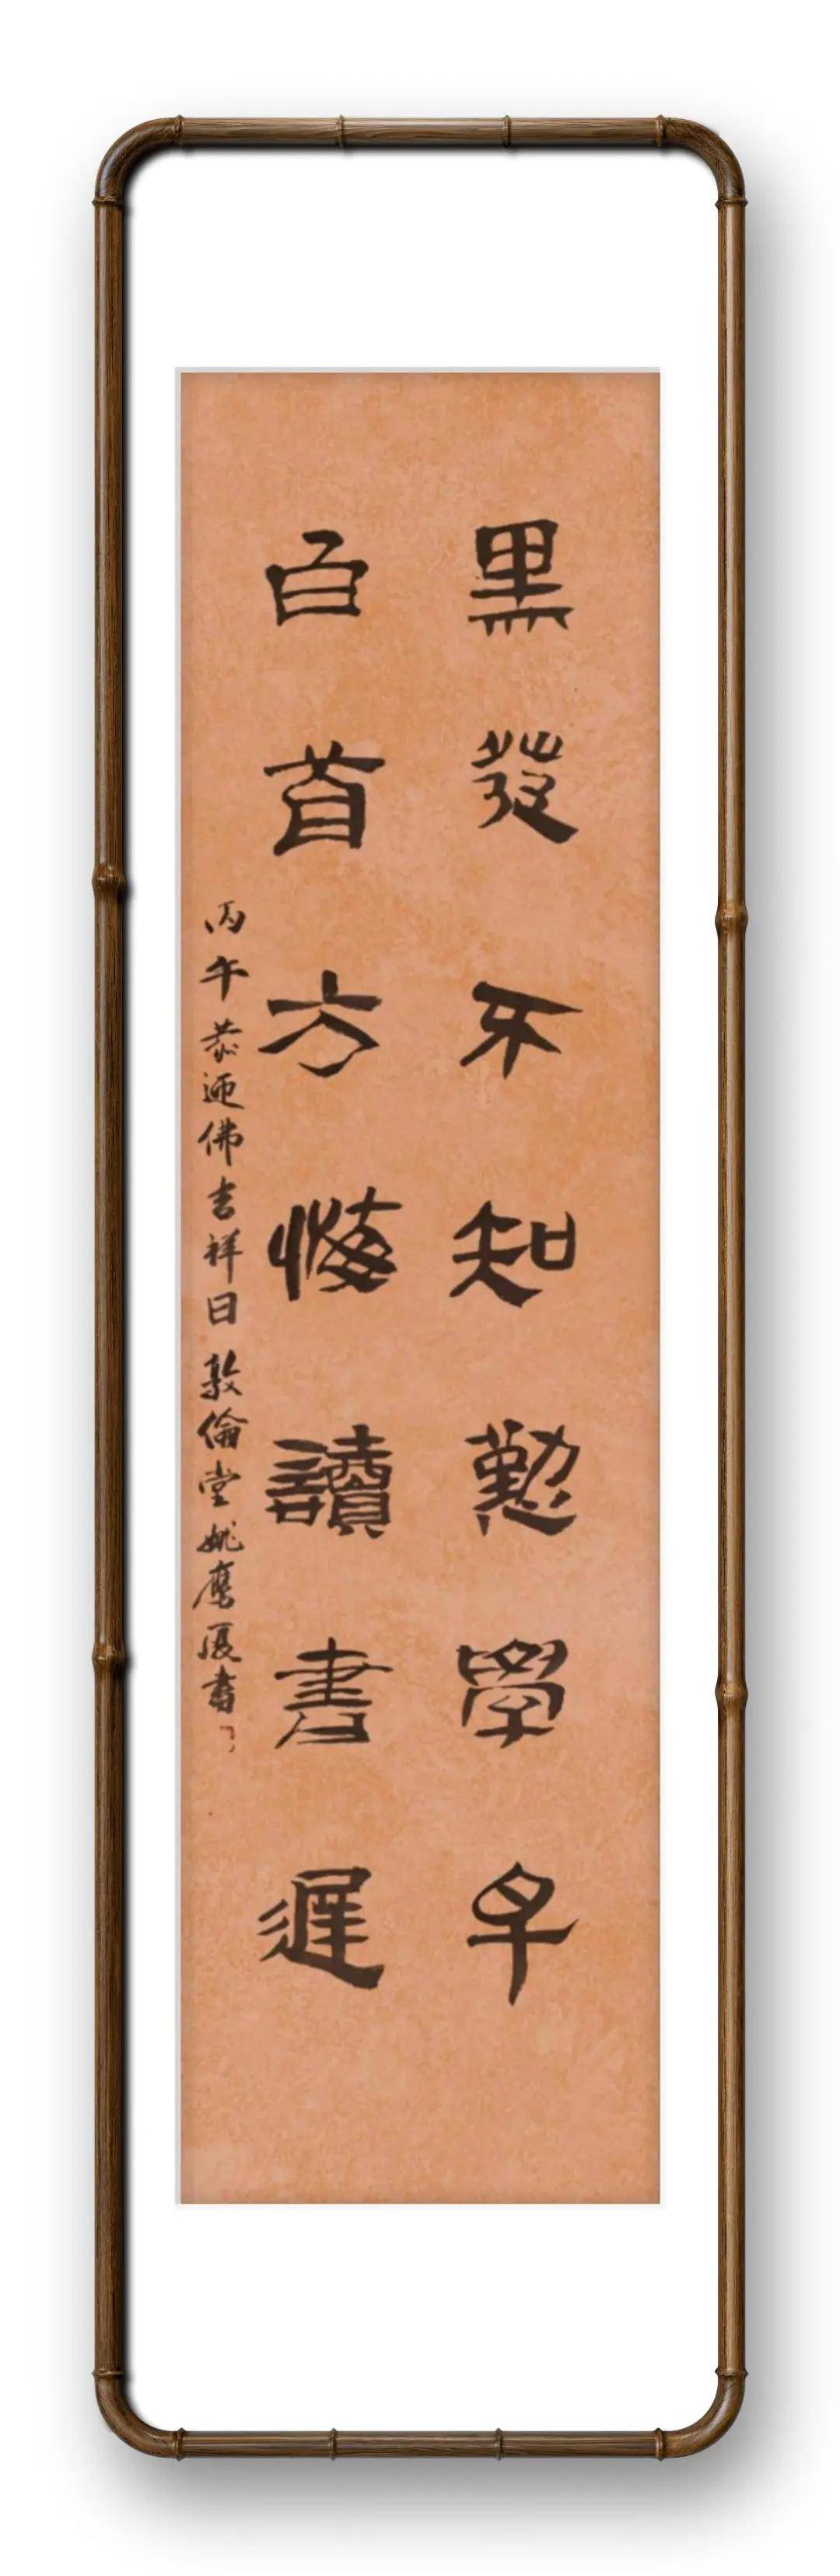 黑發不知勤學早
白首方悔讀書遲
丙午恭迎佛吉祥日 敦倫堂姚鹰厦書